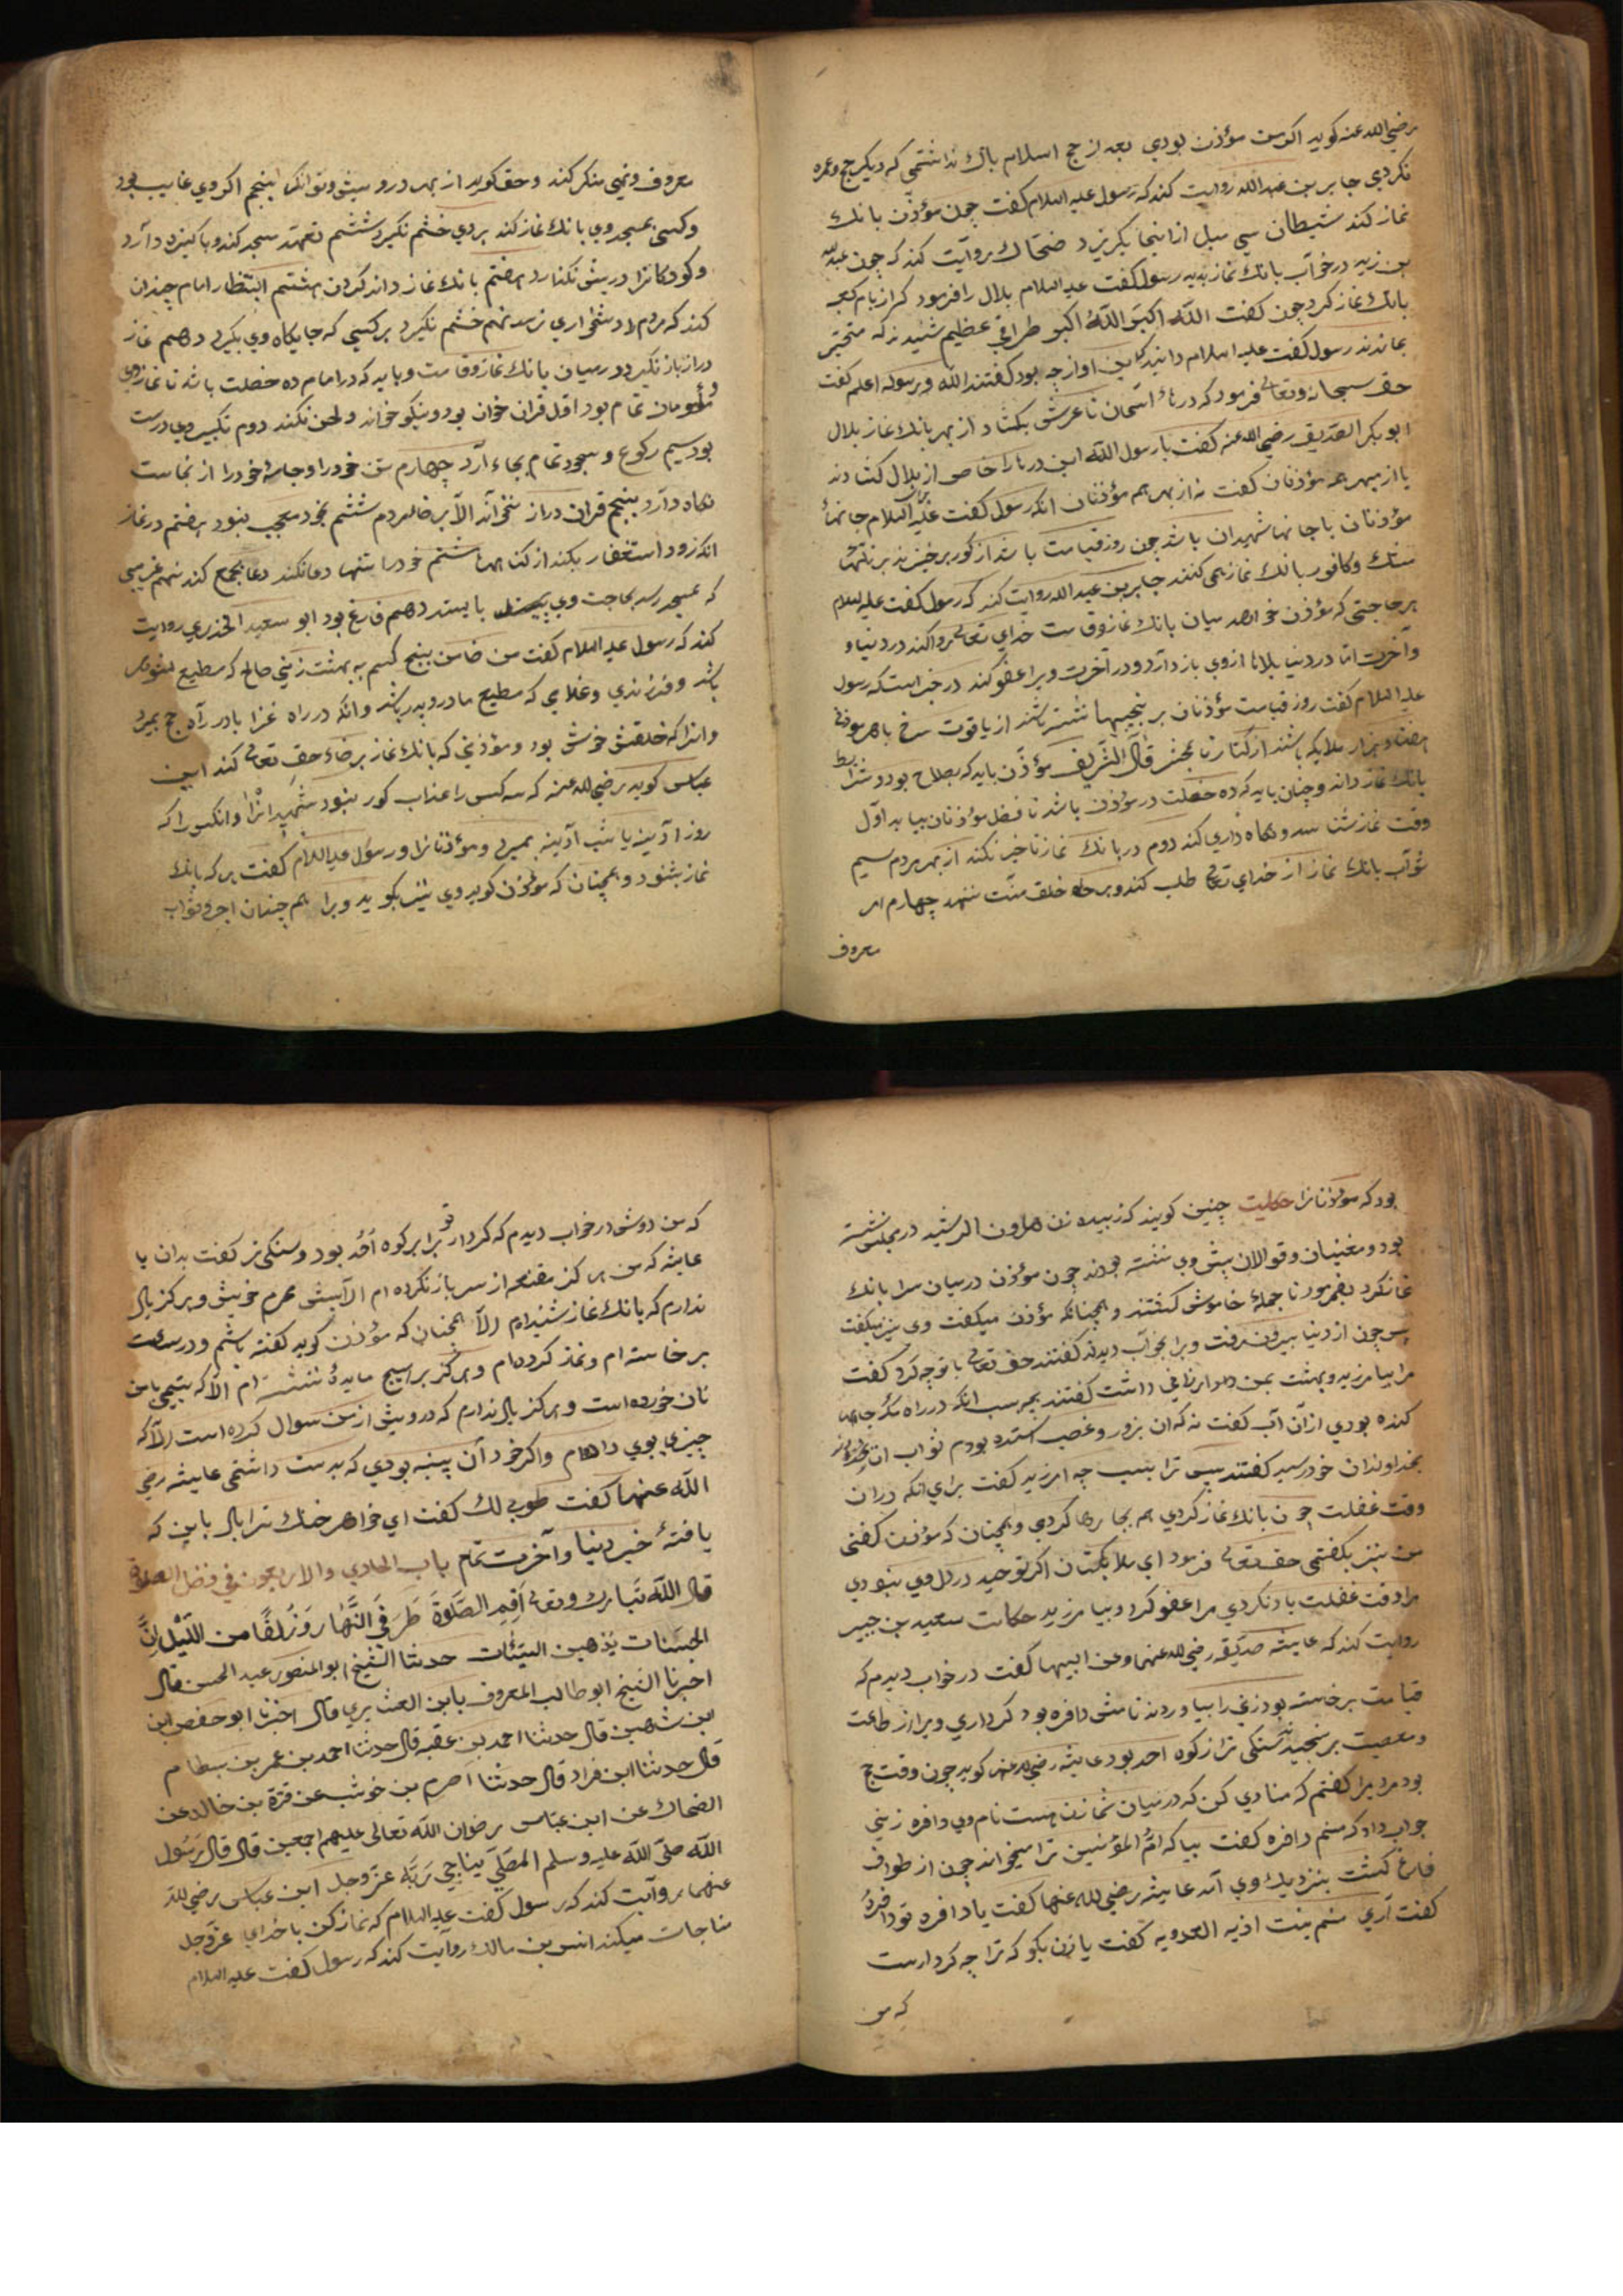 رضي الله عنه كويد اكر من مؤذن بودي بعد از حج اسلام باك نداشتمي كه ديكر حج و عمره
نكردمي جابر بن عبد الله روايت كند كه رسول عليه السلام كفت چون مؤذن بانك
نماز كند شيطان سي ميل از اينجا بكريزد ضحاك روايت كند كه چون عبد الله
بن زيد در خواب بانك نماز بديد رسول كفت عليه السلام بلال را فرمود كه از بام كعبه
بانك نماز كرد چون كفت الله اكبر الله اكبر طراقي عظيم شنيدند كه متحير
بماندند رسول كفت عليه السلام دانيد كه اين اواز چه بود كفتند الله و رسوله اعلم كفت
حق سبحانه و تعالى فرمود كه درهاء آسمان تا عرش بكشاد از بهر بانك نماز بلال
ابو بكر الصديق رضي الله عنه كفت يا رسول الله اين درها را خاص از بلال كشادند
يا از بهر همه مؤذنان كفت نه از بهر هم مؤذنان انكه رسول كفت عليه السلام جانهاء
مؤذنان با جانها شهيدان باشد چون روز قيامت باشد از كور برخيزند بر تلها
مشك و كافور بانك نماز همي كنند جابر بن عبد الله روايت كند كه رسول كفت عليه السلام
هر حاجتي كه مؤذن خواهد ميان بانك نماز و قامت خداي تعالى روا كند در دنيا و
و آخرت اما در دنيا بلاها از وي باز دارد و در آخرت ويرا عفو كند در خبر است كه رسول
عليه السلام كفت روز قيامت مؤذنان بر نجيبها نشسته باشند از ياقوت سرخ با هر مؤذني
هفتاد هزار ملايكه باشند از كنار تا بمحشر قال الشريف مؤذن بايد كه بصلاح بود و شرايط
بانك نماز داند و چنان بايد كه ده خصلت در مؤذن باشد تا فضل مؤذنان بيابد اول
وقت نماز شناسد و نكاه داري كند دوم در بانك نماز تاخير نكند از بهر مردم سيم
ثواب بانك نماز از خداي تعالى طلب كند و بر خلق منت ننهد چهارم امر
معروف
معروف و نهي منكر كند و حق كويد از بهر درويش و توانكر پنجم اكر وي غايب بود
و كسي بمسجد وي بانك نماز كند بر وي خشم نكيرد ششم تعهد مسجد كند و پاكيزه دارد
و كودكانرا درپش نكذارد هفتم بانك نماز داند كردن هشتم انتظار امام چندان
كند كه مردم را دشخواري نرسد نهم خشم نكيرد بر كسي كه جايكاه وي بكيرد دهم نماز
دراز باز نكيرد در ميان بانك نماز و قامت و بايد كه در امام ده خصلت باشد تا نماز وي
و مؤمنان تمام بود اول قران خوان بود و نيكو خواند و لحن نكند دوم تكبير وي درست
بود سيم ركوع و سجود تمام بجاء آرد چهارم تن خود را و جامه خود را از نجاست
نكاه دارد پنجم قران دراز نخواند الا برضا مردم ششم بخود معجب نبود هفتم در نماز
انكه زود استغفار بكند از كناهها هشتم خود را تنها دعا نكند دعا بجمع كند نهم غريبي
كه بمسجد رسد بحاجت وي بايستد دهم فارغ بود ابو سعيد الخدري روايت
كند كه رسول عليه السلام كفت من ضامن پنج كسم به بهشت زني صالح كه مطيع شوهر
باشد و فرزندي و غلامي كه مطيع مادر و پدر باشد و انكه در راه غزا يا در راه حج بميرد
و انرا كه خلقش خوش بود و مؤذني كه بانك نماز برضاء حق تعالى كند ابن
عباس كويد رضي الله عنه كه سه كس را عذاب كور نبود شهيدانرا و انكس را كه
روز ادينه يا شب آدينه بميرد و مؤذنانرا و رسول عليه السلام كفت هر كه بانك
نماز بشنود و همچنان كه مؤذن كويد وي نيز بكويد ويرا هم چندان اجر و ثواب
بود كه مؤذنانرا حكايت چنين كويند كه زبيده زن هارون الرشيد در مجلس نشسته
بود و مغنيان و قوالان پيش وي نشسته بودند چون مؤذن در ميان سرا بانك
نماز كرد بفرمود تا جمله خاموش كشتند و همچنانكه مؤذن ميكفت وي نيز ميكفت
پس چون از دنيا بيرون رفت ويرا بخواب ديدند كفتند حق تعالى با تو چه كرد كفت
مرا بيامرزيد و بهشت بمن ارزاني داشت كفتند بچه سبب انكه در راه مكه چاهها
كنده بودي از آن آب كفت نه كه ان بزور و غصب استده بودم ثواب ان
بخداوندان خود رسيد كفتند پس ترا بسبب چه امرزيد كفت براي انكه در ان
وقت غفلت چون بانك نماز كردي هم بجا رها كردمي و همچنان كه مؤذن كفتي
من نيز بكفتمي حق تعالى فرمود اي ملايكتان اكر توحيد در دل وي نبودي
مرا وقت غفلت ياد نكردي مرا عفو كرد و بيامرزيد حكايت سعيد بن جبير
روايت كند كه عايشه صديقه رضي الله عنها و عن ابيها كفت در خواب ديدم كه
قيامت برخاسته بود زني را بياوردند نامش دافره بود كرداري ويرا از طاعت
و معصيت بر سنجيدند سنكي تر از كوه احد بود عايشه رضي الله عنها كويد چون وقت حج
بود مرد برا كفتم كه منادي كن كه در ميان شما زن هست نام وي دافره زني
جواب داد كه منم دافره كفت بيا كه ام المؤمنين ترا ميخواند چون از طواف
فارغ كشت بنزديك وي آمد عايشه رضي الله عنها كفت يا دافره تو دافره
كفت آري منم بنت اذيه العدويه كفت يا زن بكو كه ترا چه كردارست
كه من
كه من دوش در خواب ديدم كه كردار تو برابر كوه احد بود و سنكي تر كفت بدان يا
عايشه كه من هر كز مقنعه از سر باز نكرده ام الا پيش محرم خويش و هركز ياد
ندارم كه بانك نماز شنيدم الا همچنان كه مؤذن كويد كفته باشم و در ساعت
برخاسته ام و نماز كرده ام و هركز بر هيچ مايدۀ ننشسته ام الا كه يتيمي با من
نان خورده است و هركز ياد ندارم كه درويش از من سوال كرده است الا كه
چيزي بوي داده ام و اكر خود آن پنبه بودي كه بدست داشتمي عايشه رضي
الله عنها كفت طوبى لك كفت اي خواهر خنك ترا باد باين كه
يافتۀ خير دنيا و آخرت تمام باب الحادي والاربعون في فضل الصلوة
قال الله تبارك وتعالى أقم الصلوة طرفي النهار وزلفا من الليل إن
الحسنات يذهبن السيئات حدثنا الشيخ ابو المنصور عبد المحسن قال
اخبرنا الشيخ ابو طالب المعروف بابن العشيري قال اخبرنا ابو حفص ابن
ابن شاهين قال حدثنا احمد بن عقبه قال حدثنا احمد بن عمر بن بسطام
قال حدثنا ابن فراد قال حدثنا اصرم بن خوشب عن قرة بن خالد عن
الضحاك عن ابن عباس رضوان الله تعالى عليهم اجمعين قال قال رسول
الله صلى الله عليه وسلم المصلي يناجي ربه عز وجل ابن عباس رضي الله
عنهما روايت كند كه رسول كفت عليه السلام كه نماز كن با خداي عز وجل
مناجات ميكند انس بن مالك روايت كند كه رسول كفت عليه السلام